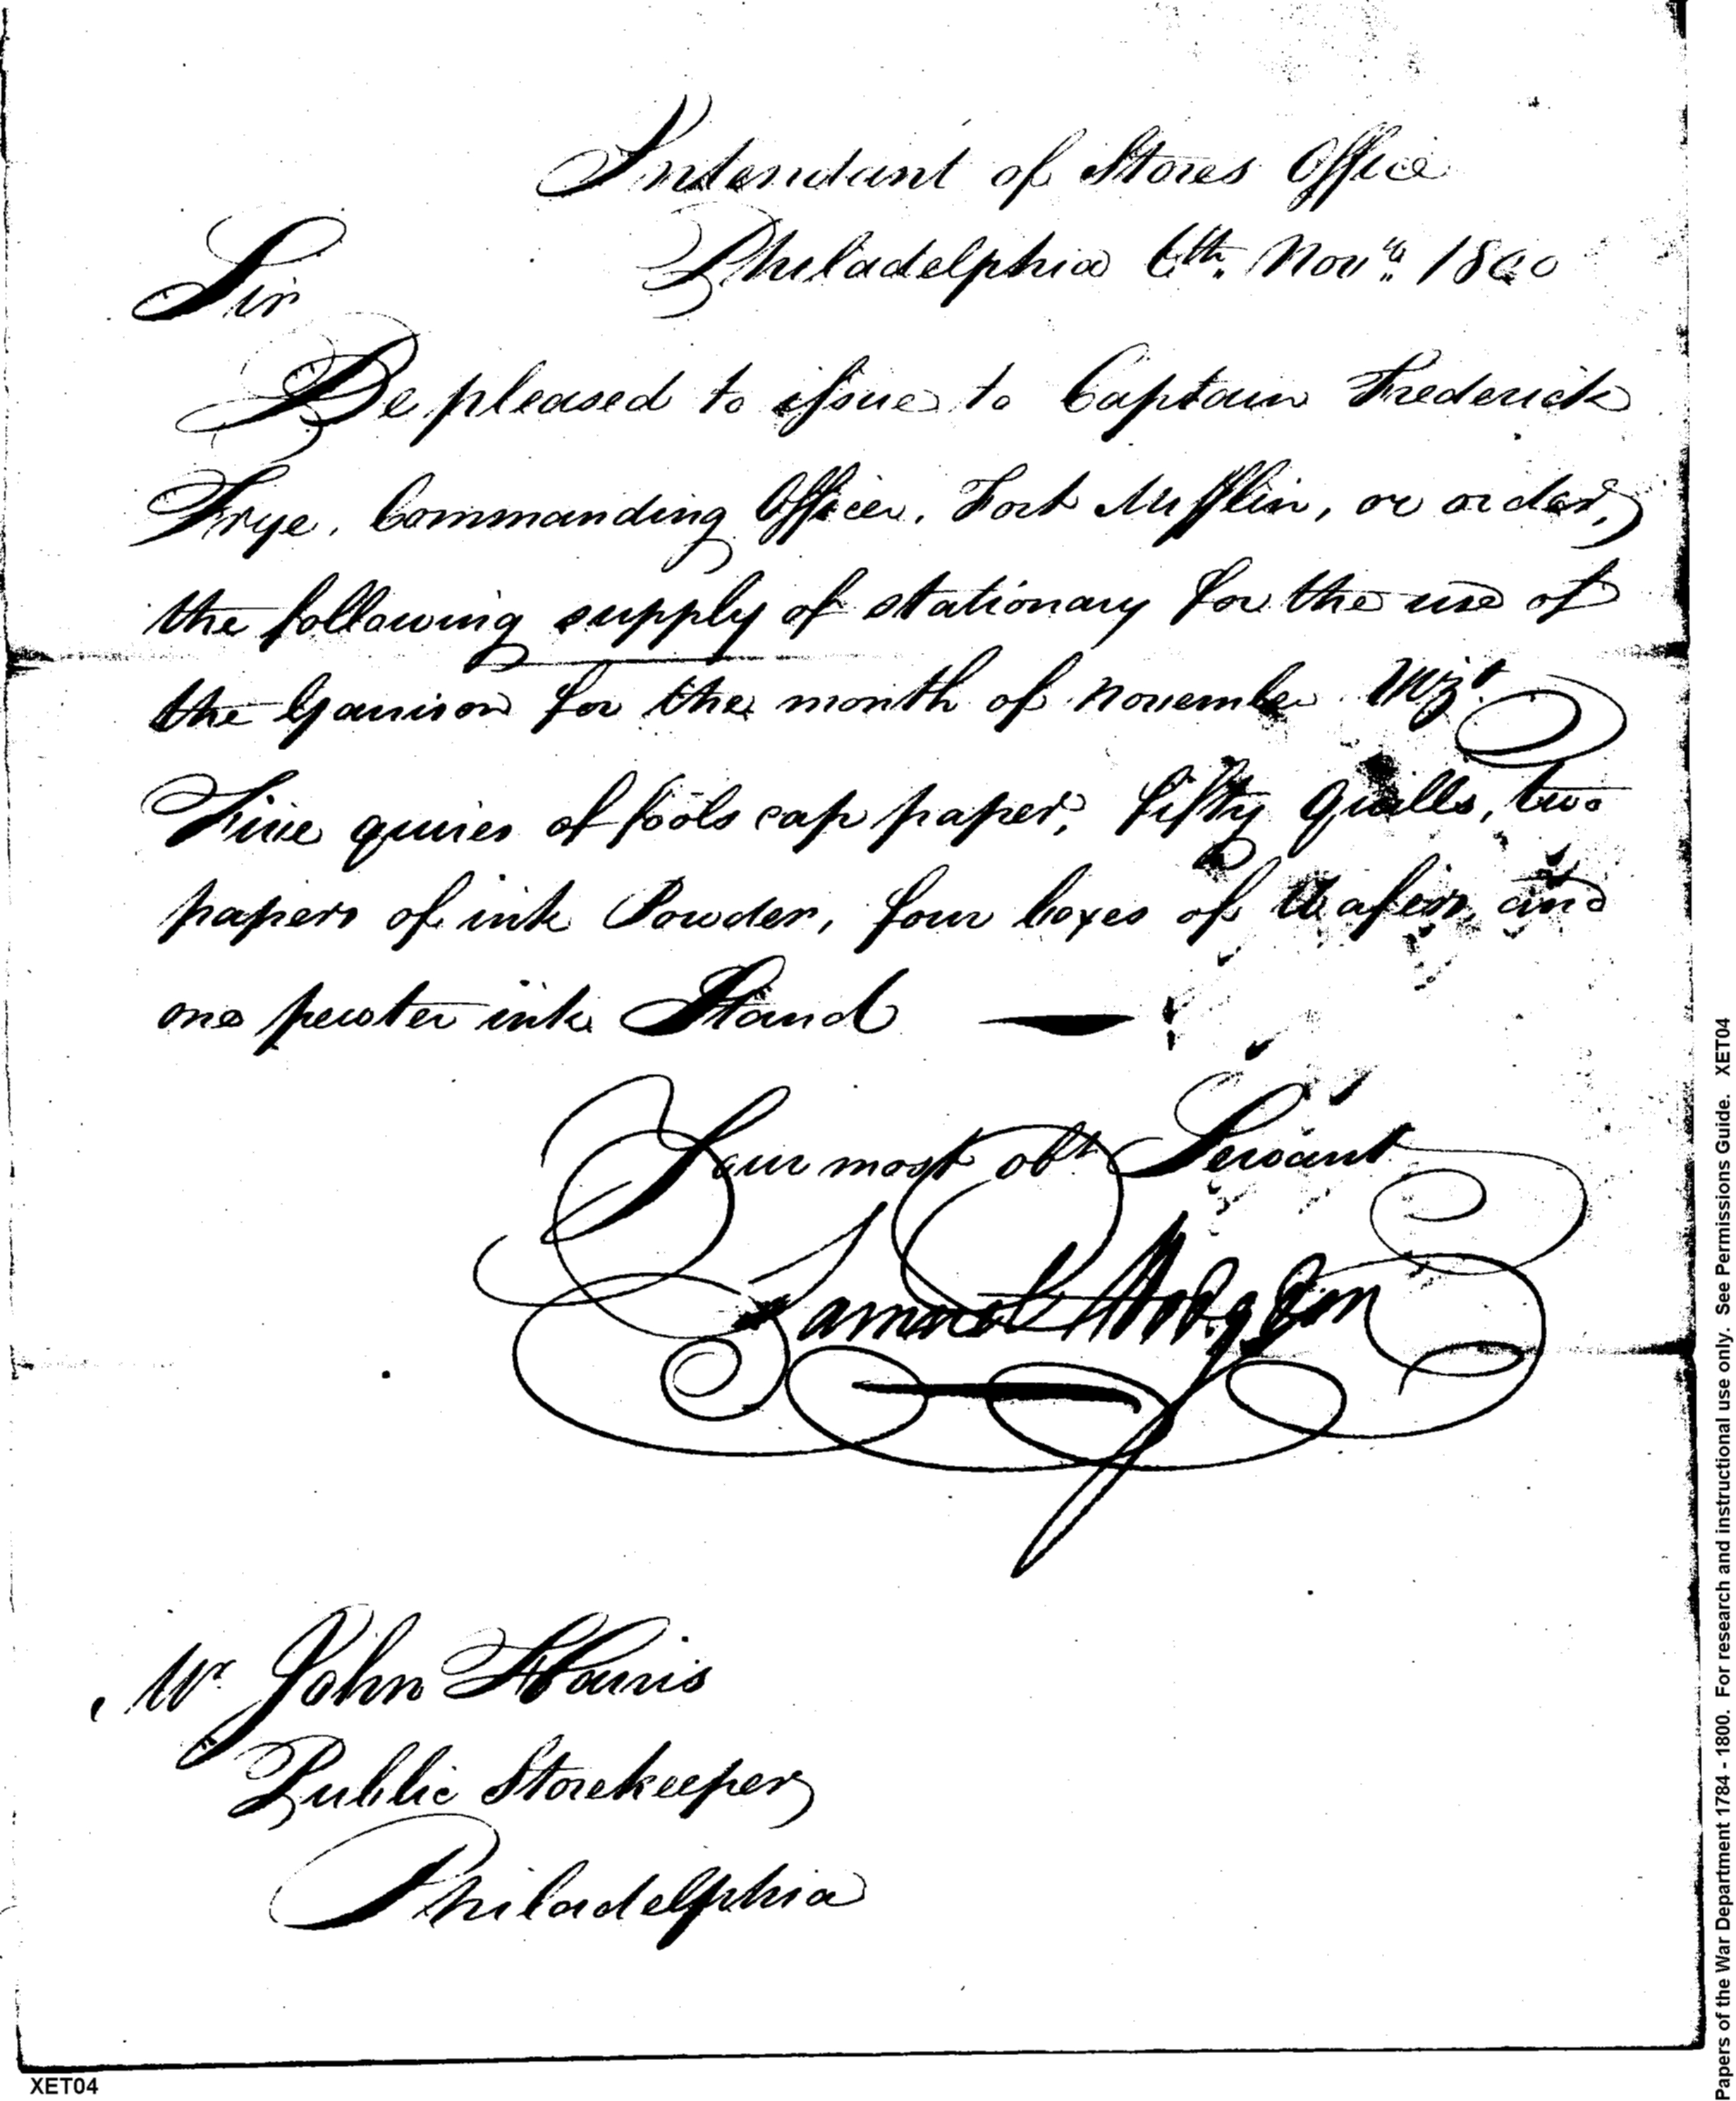 Intendant of Stores Office
Philadelphia 6th. Novr. 1800
Sir
Be pleased to issue to Captain Frederick
Frye, Commanding Officer, Fort Mifflin, or order,
the following supply of stationary for the use of
the Garrison for the month of November Viz.
Five quires of fools cap paper, fifty Quills, two
papers of ink Powder, four boxes of Wafers, and
one pewter ink Stand
Your most obt Servant
Samuel Hodgdon
Mr. John Harris
Public Storekeeper
Philadelphia
XET04
Papers of the War Department 1784 - 1800. For research and instructional use only. See Permissions Guide. XET04